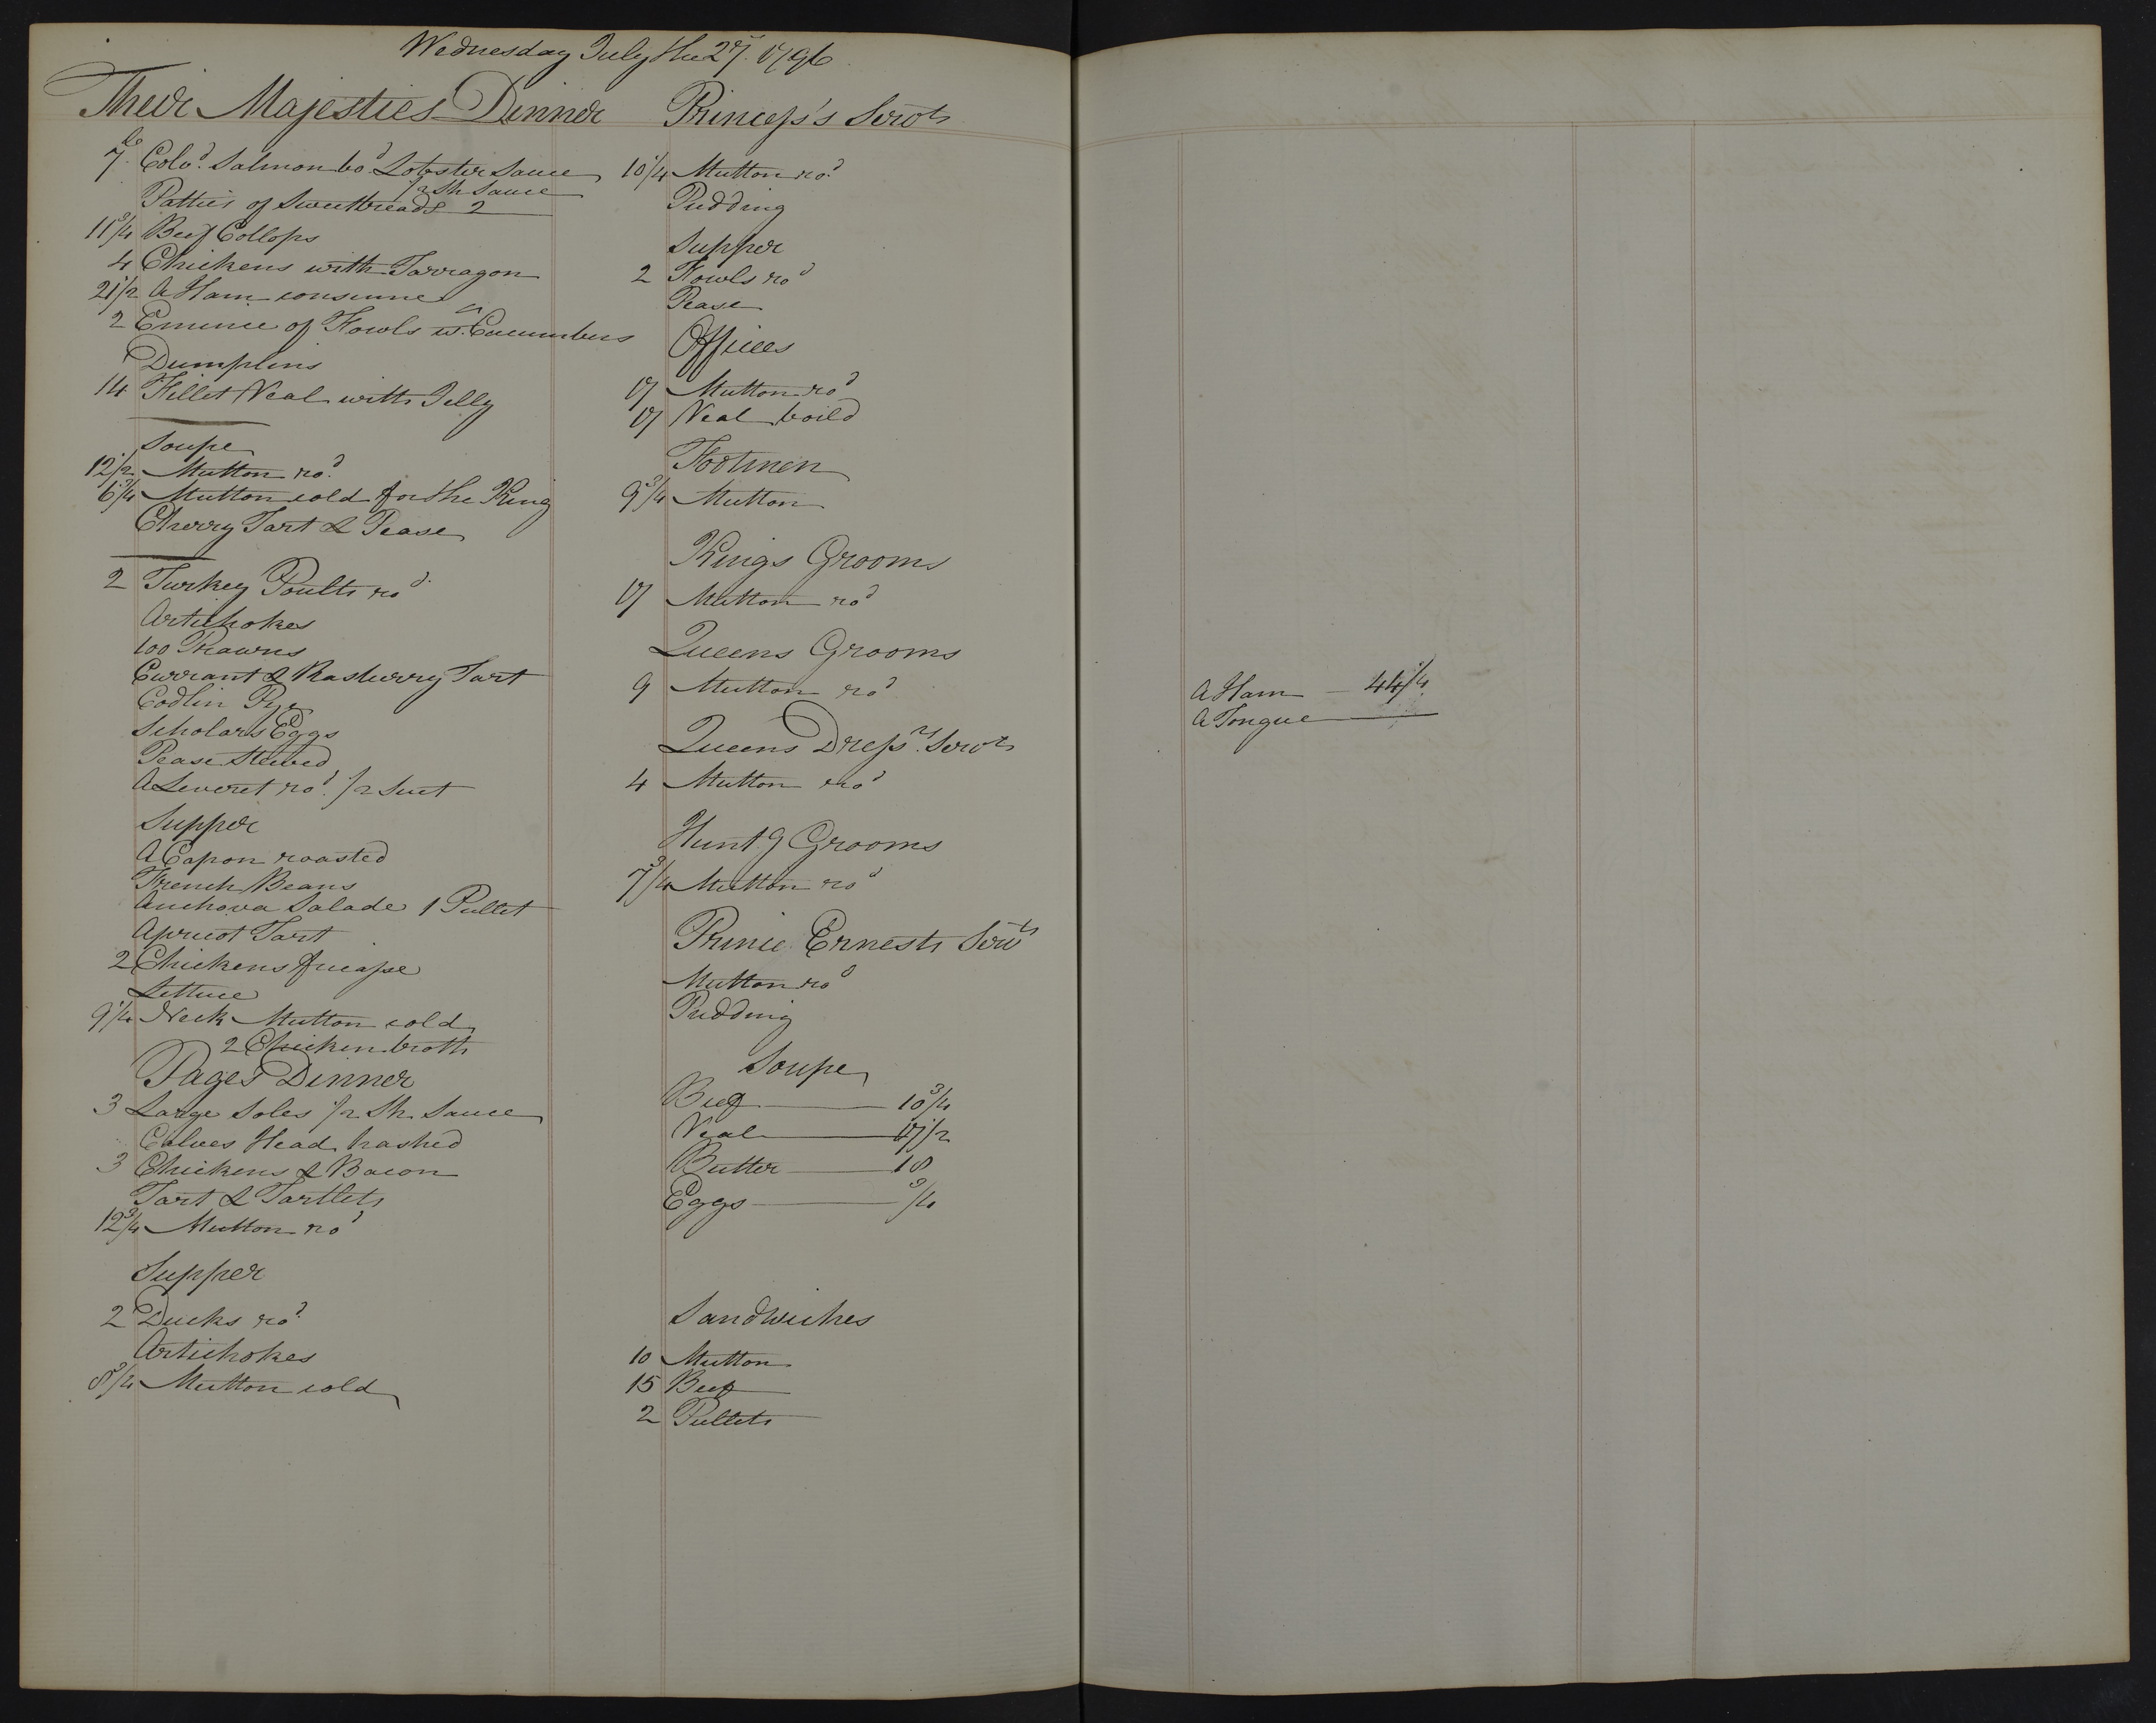 Wednesday July the 27. 1796
Their Majesties Dinner
lb
7 Colo.d Salmon bo.d Lobster Sauce
1/2 Sh Sauce
Patties of Sweetbreads 2
11 3/4 Beef Collops
4 Chickens with Tarragon
21 1/2 A Ham consume
2 Emince of Fowls w. Cucumbers
Dumplins
14 Fillet Veal with Jelly
Soupe
12 1/2 Mutton ro.d
6 3/4 Mutton cold for the King
Cherry Tart & Pease
2 Turkey Poults ro.d
Artichokes
100 Prawns
Currant & Rasberry Tart
Codlin Pye
Scholars Eggs
Pease Stewed
A Leveret ro.d 1/2 Suet
Supper
A Capon roasted
French Beans
Anchova Salade 1 Pullet
Apricot Tart
2 Chickens fricasse
Lettuce
9 1/4 Neck Mutton cold
2 Chicken broth
Pages Dinner
3 Large Soles 1/2 Sh Sauce
Calves Head hashed
3 Chickens & Bacon
Tart & Tartlets
12 3/4 Mutton ro.d
Supper
2 Ducks ro.d
Artichokes
8 3/4 Mutton cold
Princess's Servts
10 1/4 Mutton ro.d
Pudding
Supper
2 Fowls ro.d
Pease
Offices
17 Mutton ro.d
17 Veal boild
Footmen
9 3/4 Mutton
Kings Grooms
17 Mutton ro.d
Queens Grooms
9 Mutton ro.d
Queens Dress.rs Servts
4 Mutton ro.d
Hunt.g Grooms
7 3/4 Mutton ro.d
Prince Ernests Servts
Mutton ro.d
Pudding
Soupe
Beef 10 3/4
Veal 17 1/2
Butter 18
Eggs 3/4
Sandwiches
10 Mutton
15 Beef
2 Pullets
A Ham - 44 1/4
A Tongue